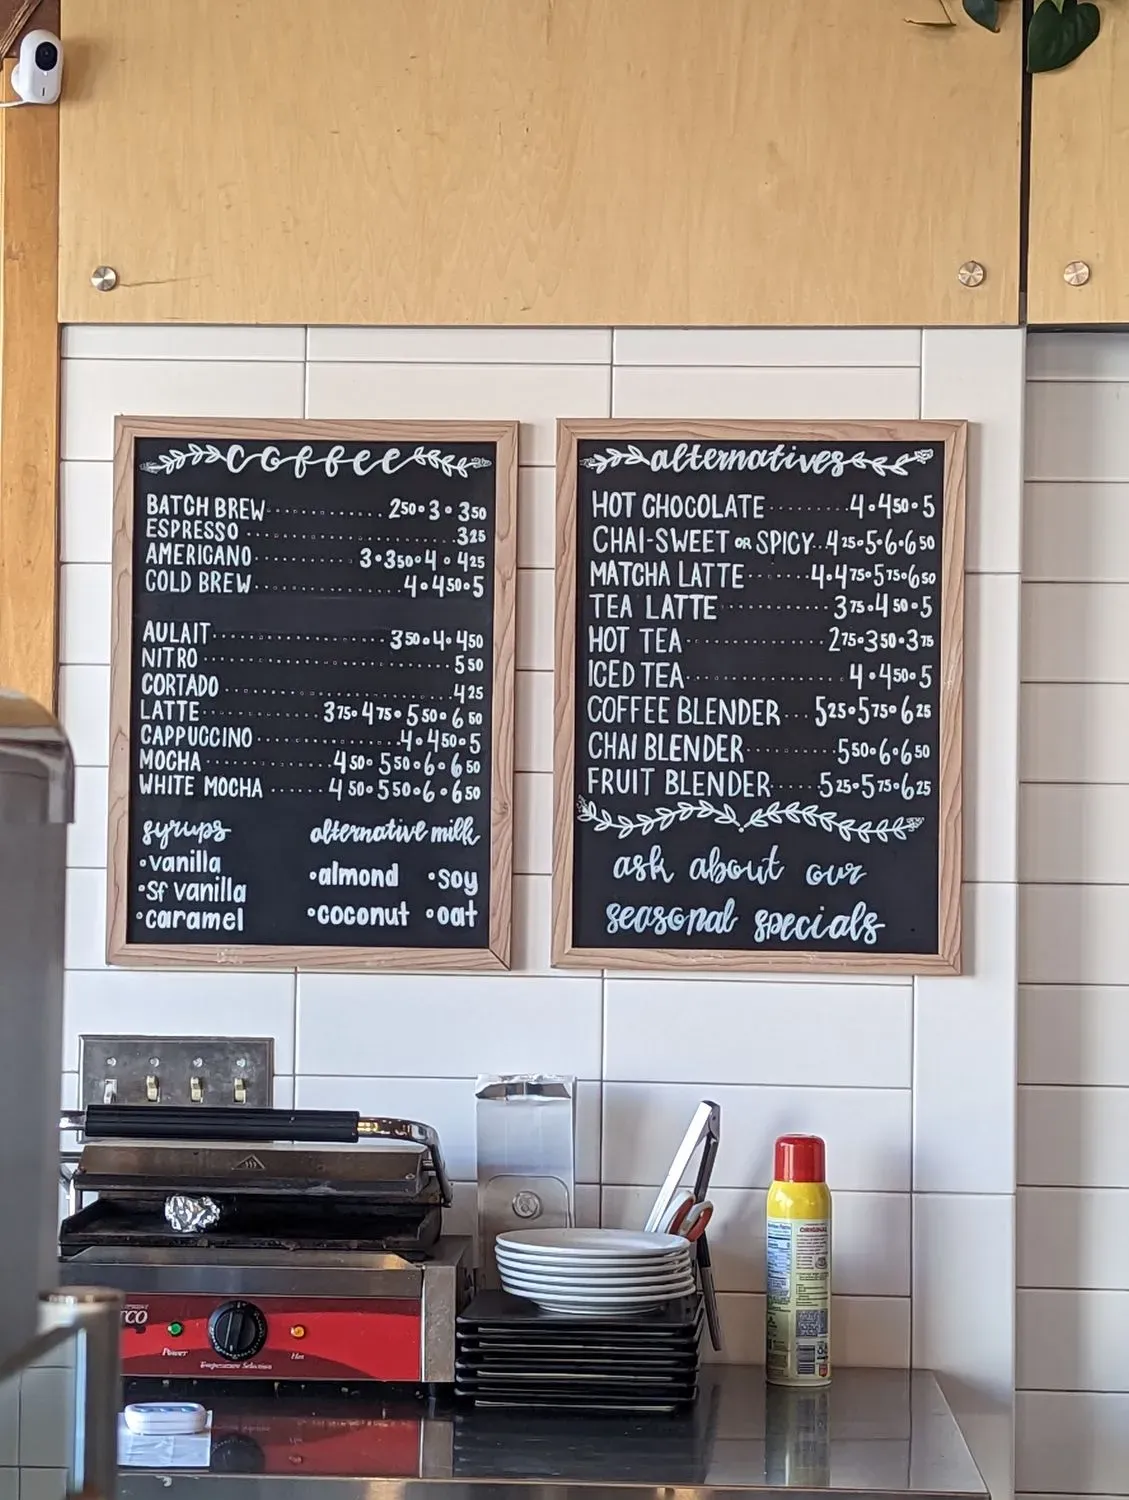 coffee
BATCH BREW 2⁵⁰ • 3 • 3⁵⁰
ESPRESSO 3²⁵
AMERICANO 3 • 3⁵⁰ • 4 • 4²⁵
COLD BREW 4 • 4⁵⁰ • 5
AULAIT 3⁵⁰ • 4 • 4⁵⁰
NITRO 5⁵⁰
CORTADO 4²⁵
LATTE 3⁷⁵ • 4⁷⁵ • 5⁵⁰ • 6⁵⁰
CAPPUCCINO 4 • 4⁵⁰ • 5
MOCHA 4⁵⁰ • 5⁵⁰ • 6 • 6⁵⁰
WHITE MOCHA 4⁵⁰ • 5⁵⁰ • 6 • 6⁵⁰
syrups
• vanilla
• sf vanilla
• caramel
alternative milk
• almond • soy
• coconut • oat
alternatives
HOT CHOCOLATE 4 • 4⁵⁰ • 5
CHAI-SWEET OR SPICY 4²⁵ • 5 • 6 • 6⁵⁰
MATCHA LATTE 4 • 4⁷⁵ • 5⁷⁵ • 6⁵⁰
TEA LATTE 3⁷⁵ • 4⁵⁰ • 5
HOT TEA 2⁷⁵ • 3⁵⁰ • 3⁷⁵
ICED TEA 4 • 4⁵⁰ • 5
COFFEE BLENDER 5²⁵ • 5⁷⁵ • 6²⁵
CHAI BLENDER 5⁵⁰ • 6 • 6⁵⁰
FRUIT BLENDER 5²⁵ • 5⁷⁵ • 6²⁵
ask about our
seasonal specials
Power
Temperature Selection
Hot
ORIGINAL